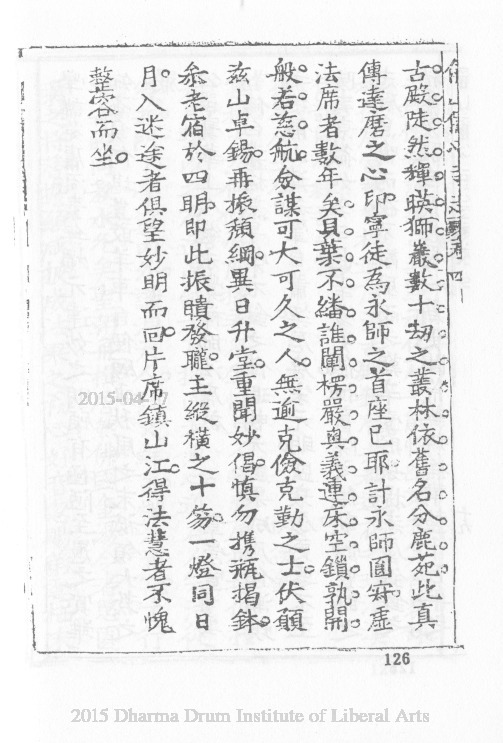 卷四
古殿陡然輝暎獅巖數十刼之叢林依舊名分鹿苑此真
傳達磨之心印寧徒為永師之首座已耶計永師圓寂虛
法席者數年矣貝葉不繙誰闡楞嚴奧義連床空鎖孰開
般若慈航僉謀可大可久之人無逾克儉克勤之士伏願
茲山卓錫再振頹綱異日升堂重聞妙偈慎勿携瓶揭鉢
叅老宿於四明即此振聵發聾主縱橫之十笏一燈同日
月入迷途者俱望妙明而回片席鎮山江得法慧者不愧
整容而坐
2015-04-
126
2015 Dharma Drum Institute of Liberal Arts